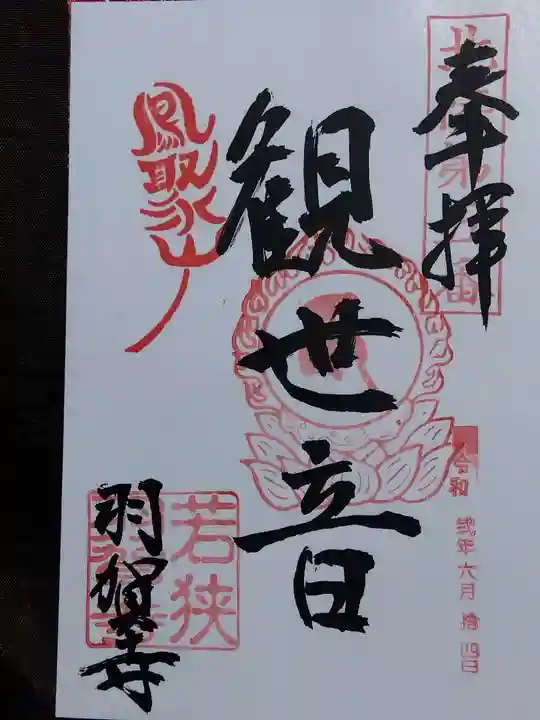 奉拝
令和 弐年 六月 拾四日
観世音
鳳聚山
若狭
羽賀寺